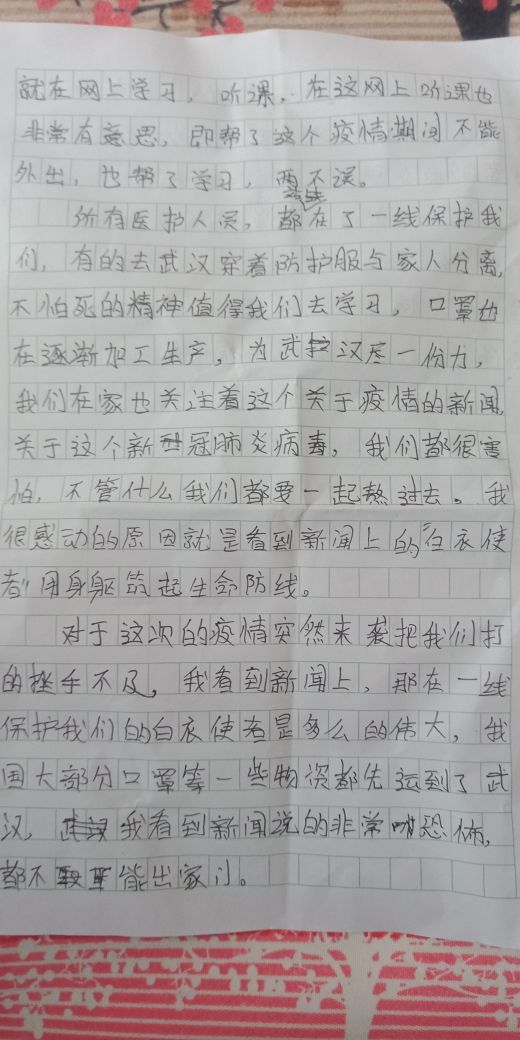 就在网上学习，听课，在这网上听课也
非常有意思，即帮了这个疫情期间不能
外出，也帮了学习，两不误。
所有医护人员，都在了一线保护我
们，有的去武汉穿着防护服与家人分离，
不怕死的精神值得我们去学习，口罩也
在逐渐加工生产，为武汉尽一份力，
我们在家也关注着这个关于疫情的新闻，
关于这个新型冠肺炎病毒，我们都很害
怕，不管什么我们都要一起熬过去。我
很感动的原因就是看到新闻上的“白衣使
者”用身躯筑起生命防线。
对于这次的疫情突然来袭把我们打
的挫手不及，我看到新闻上，那在一线
保护我们的白衣使者是多么的伟大，我
国大部分口罩等一些物资都先运到了武
汉，我看到新闻说的非常恐怖，
都不能出家门。